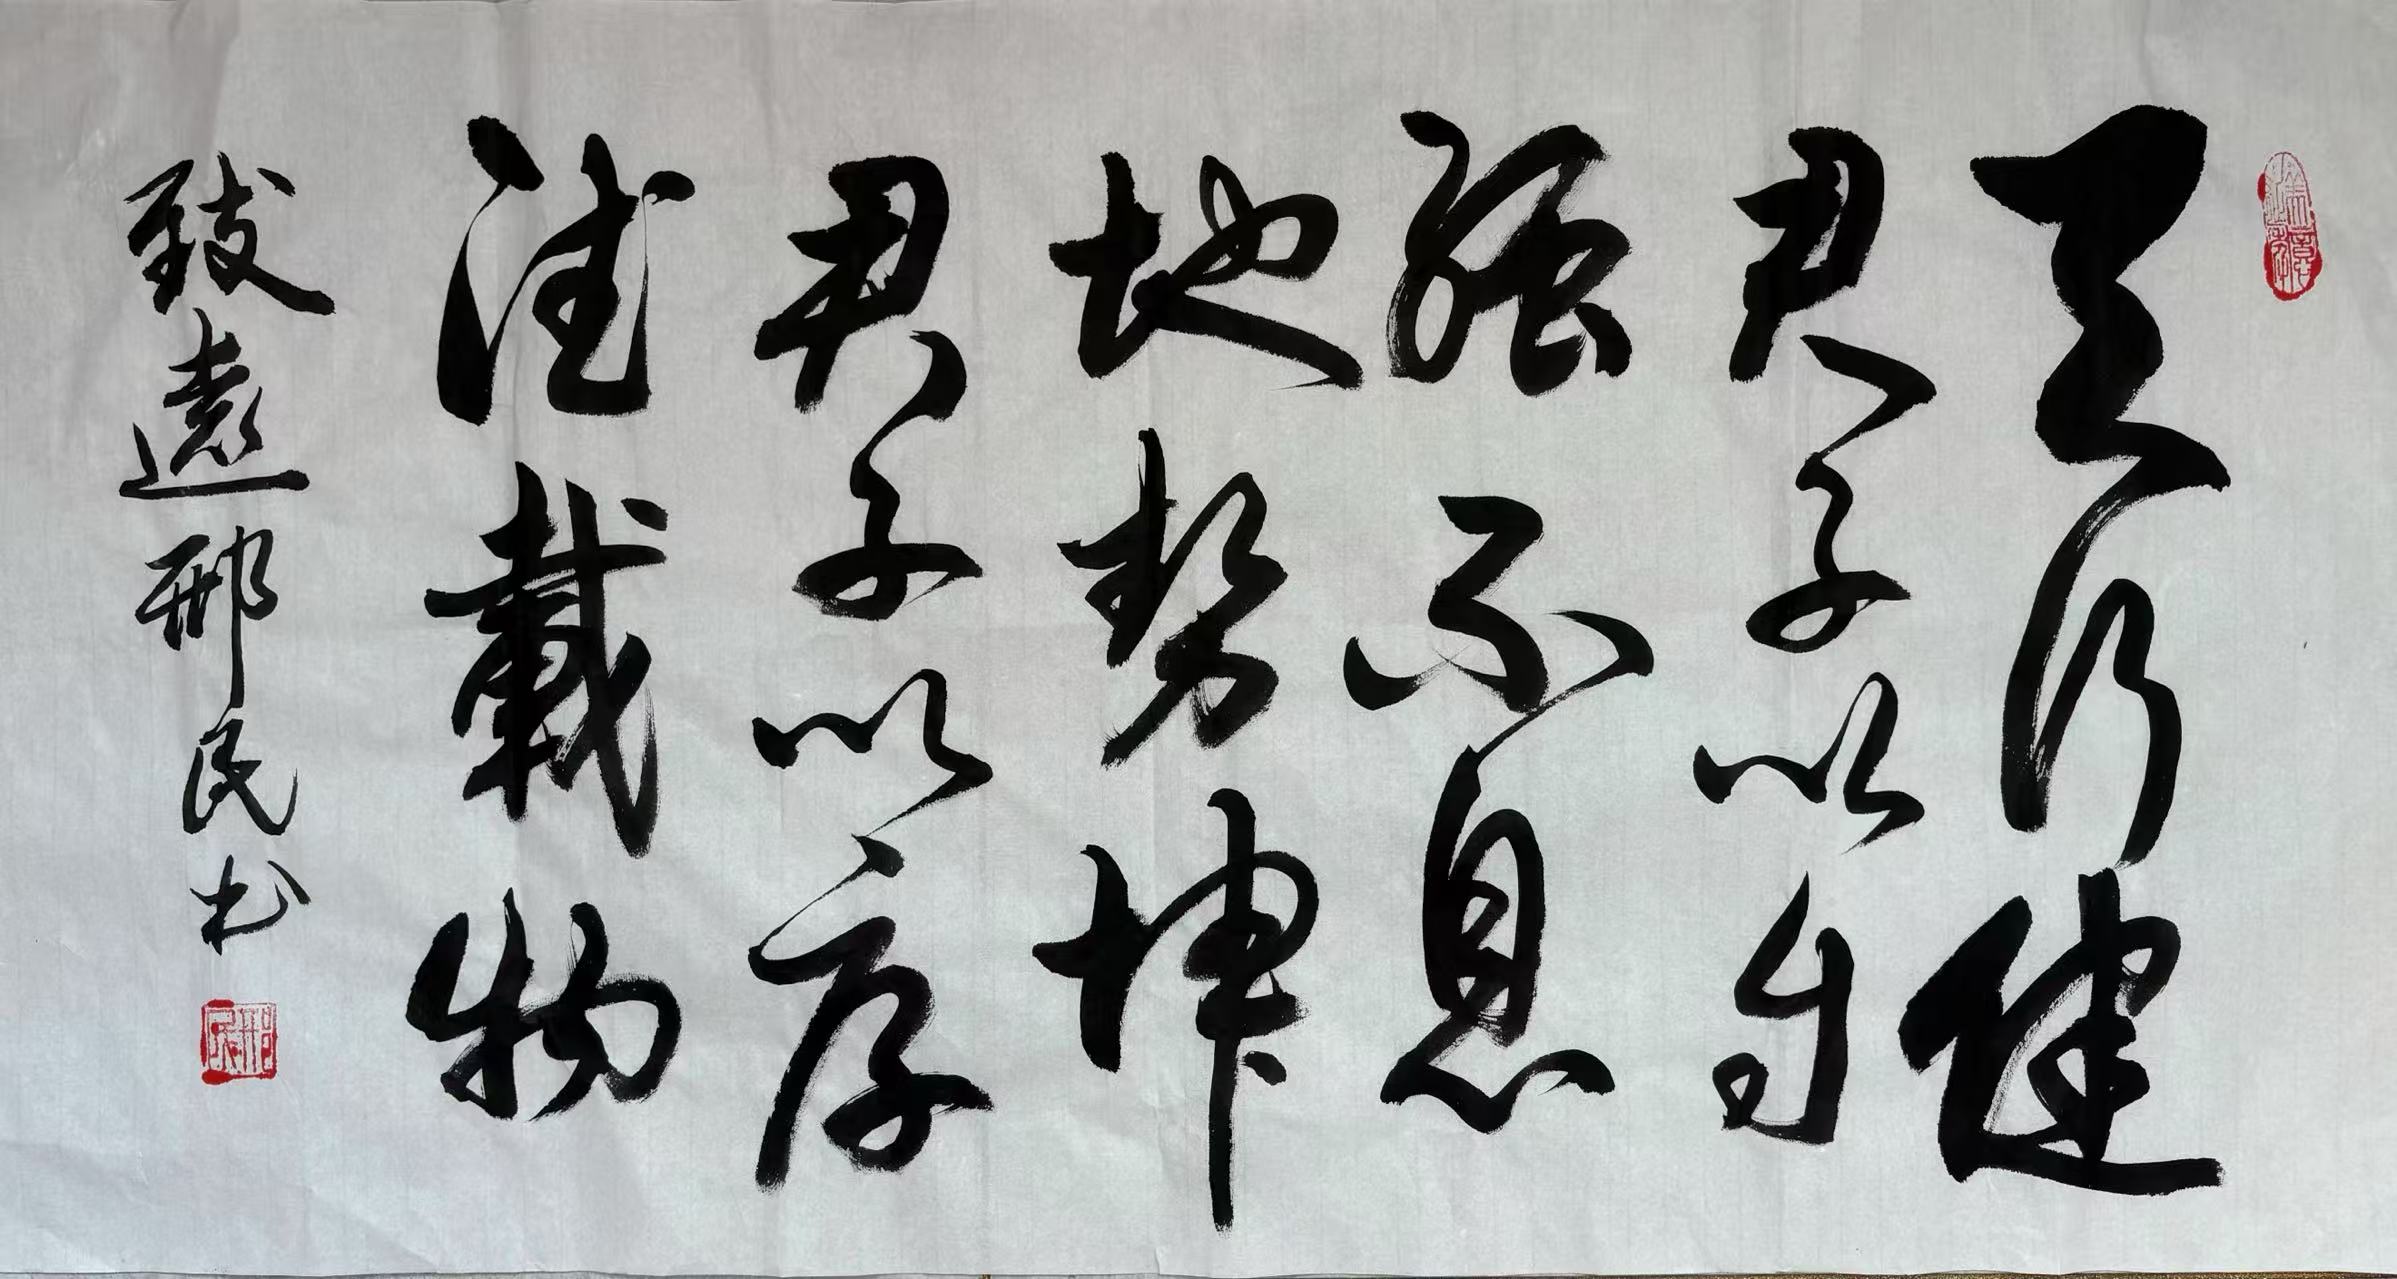 天行健
君子以自
强不息
地势坤
君子以厚
德載物
致遠邢民书
邢民